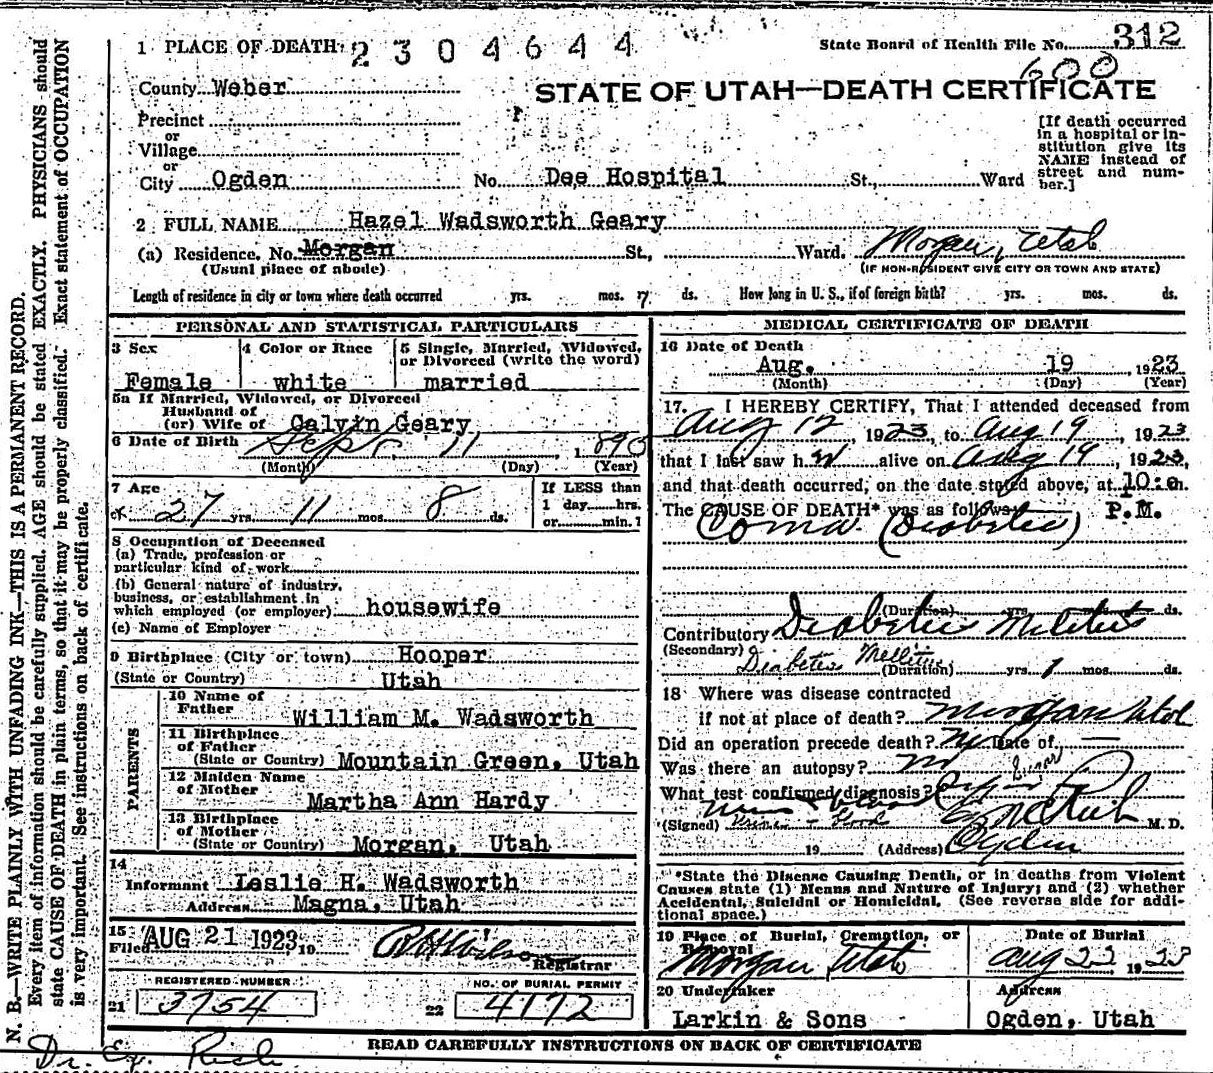 N. B.—WRITE PLAINLY WITH UNFADING INK—THIS IS A PERMANENT RECORD.
Every item of information should be carefully supplied. AGE should be stated EXACTLY. PHYSICIANS should
state CAUSE OF DEATH in plain terms, so that it may be properly classified. Exact statement of OCCUPATION
is very important. See instructions on back of certificate.
1 PLACE OF DEATH: 2304644
State Board of Health File No. 312
600
County Weber
STATE OF UTAH—DEATH CERTIFICATE
Precinct
or
Village
or
City Ogden No. Dee Hospital St., Ward
[If death occurred
in a hospital or in-
stitution give its
NAME instead of
street and num-
ber.]
2 FULL NAME Hazel Wadsworth Geary
(a) Residence. No. Morgan St., Ward. Morgan, Utah
(Usual place of abode)
(IF NON-RESIDENT GIVE CITY OR TOWN AND STATE)
Length of residence in city or town where death occurred yrs. mos. 7 ds. How long in U. S., if of foreign birth? yrs. mos. ds.
PERSONAL AND STATISTICAL PARTICULARS
3 Sex
Female
4 Color or Race
white
5 Single, Married, Widowed,
or Divorced (write the word)
married
5a If Married, Widowed, or Divorced
Husband of
(or) Wife of Calvin Geary
6 Date of Birth Sept. 11, 1895
(Month) (Day) (Year)
7 Age
27 yrs. 11 mos. 8 ds.
If LESS than
1 day hrs.
or min.?
8 Occupation of Deceased
(a) Trade, profession or
particular kind of work
(b) General nature of industry,
business, or establishment in
which employed (or employer) housewife
(c) Name of Employer
9 Birthplace (City or town) Hooper
(State or Country) Utah
PARENTS
10 Name of
Father William M. Wadsworth
11 Birthplace
of Father
(State or Country) Mountain Green, Utah
12 Maiden Name
of Mother
Martha Ann Hardy
13 Birthplace
of Mother
(State or Country) Morgan, Utah
14
Informant Leslie H. Wadsworth
Address Magna, Utah
15
Filed AUG 21 1923 19
Registrar
REGISTERED NUMBER
21 3754
NO. OF BURIAL PERMIT
22 4172
MEDICAL CERTIFICATE OF DEATH
16 Date of Death
Aug. 19 1923
(Month) (Day) (Year)
17. I HEREBY CERTIFY, That I attended deceased from
Aug 12, 1923, to Aug 19, 1923
that I last saw her alive on Aug 19, 1923,
and that death occurred, on the date stated above, at 10:0 m.
The CAUSE OF DEATH* was as follows: P.M.
Coma (Diabetic)
(Duration) yrs. mos. ds.
Contributory Diabetes Melitus
(Secondary) Diabetes Mellitus
(Duration) yrs. 1 mos. ds.
18 Where was disease contracted
if not at place of death? Morgan Utah
Did an operation precede death? No Date of —
Was there an autopsy? no
What test confirmed diagnosis? Sugar
urine + blood
(Signed) Urine + blood M. D.
19 (Address) Ogden
*State the Disease Causing Death, or in deaths from Violent
Causes state (1) Means and Nature of Injury; and (2) whether
Accidental, Suicidal or Homicidal. (See reverse side for addi-
tional space.)
19 Place of Burial, Cremation, or
Removal
Morgan, Utah
Date of Burial
Aug 22 1923
20 Undertaker
Larkin & Sons
Address
Ogden, Utah
READ CAREFULLY INSTRUCTIONS ON BACK OF CERTIFICATE
Dr. Ez. Rich